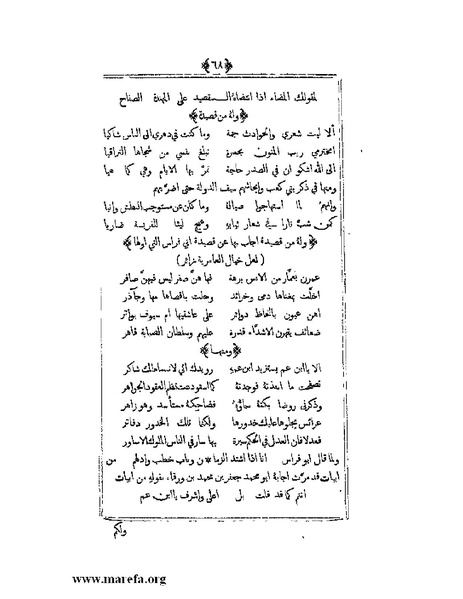 ﴿٦٨﴾
لمقولك المضاء اذا انتضاه القصيد على المهندة الصفاح
﴿وله من قصيدة﴾
ألا ليت شعري والحوادث جمة وما كنت في دهري الى الناس شاكيا
المخترمي ريب المنون بحسرة تبلغ نفسي من شجاها التراقيا
الى الله اشكو ان في الصدر حاجة تمر بها الايام وهي كما هيا
ومنها في ذكر بني كعب وايحاشهم سيف الدولة حتى اضر بهم
وانهم لما استهاجوا صياله وما كان عن مستوجب البطش وانيا
كمن شب نارا في شعار ثيابه وهيج ليثا للفريسة ضاريا
﴿وله من قصيدة اجاب بها عن قصيدة ابي فراس التي اولها﴾
(لعل خيال العامرية زائر)
عمرن بغمار من الانس برهة فها هن صفر ليس فيهن صافر
اخلت بمغناها دمى وخرائد وحلت باقصاها مها وجآذر
اهن عيون بالحاظ دوائر على عاشقيها ام سيوف بواتر
ضعائف يقهرن الاشداء قدرة عليهم وسلطان الصبابة قاهر
﴿ومنها﴾
الا يا ابن عم يستزيد ابن عمه رويدك اني لانبساطك شاكر
تصفحت ما انفذته فوجدته كما استودعت نظم العقود الجواهر
وذكرني روضا بكته سماؤه فضاحكه مستأسد وهو زاهر
عرائس يجلوها عليك خدورها ولكنما تلك الخدور دفاتر
فعدلا فان العدل في الحكم سيرة بها سار في الناس الملوك الاساور
ولما قال ابو فراس انا اذا اشتد الزمان وناب خطب وادلهم من
ابيات قد مرت اجابه ابو محمد جعفر بن محمد بن ورقاء بقوله من ابيات
انتم كما قد قلت بل اعلى واشرف يا ابن عم
ولكم
www.marefa.org